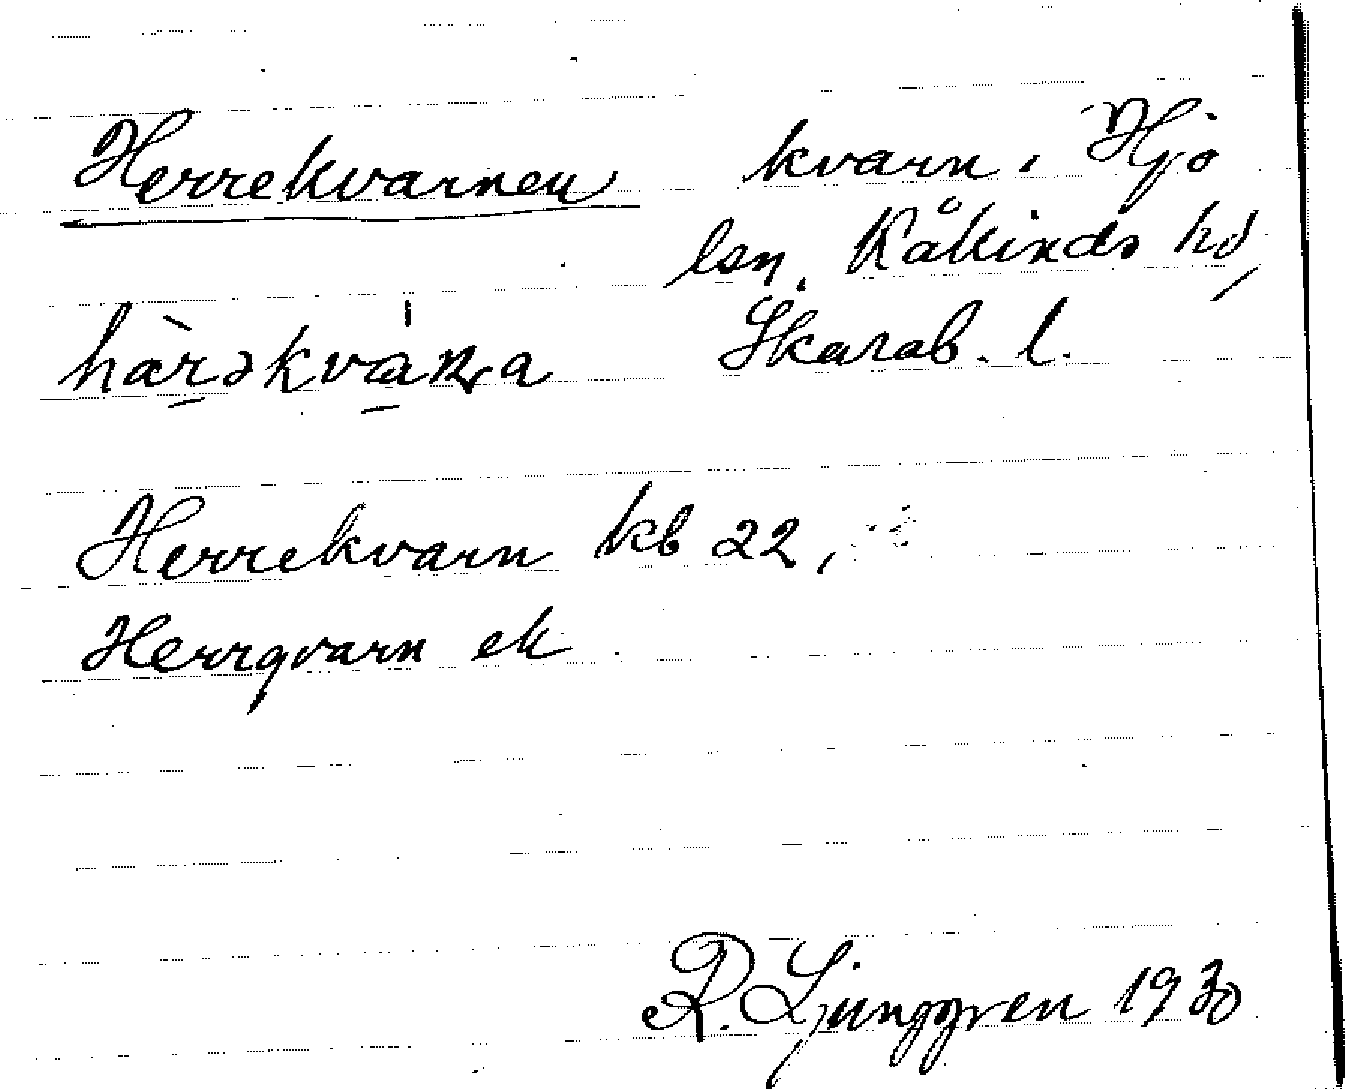 Herrekvarnen kvarn i Hjo
lsn, Kåkinds hd,
Skarab. l.
hàrəkváɳa
Herrekvarn kb 22,
Herrqvarn ek
R. Ljunggren 1930